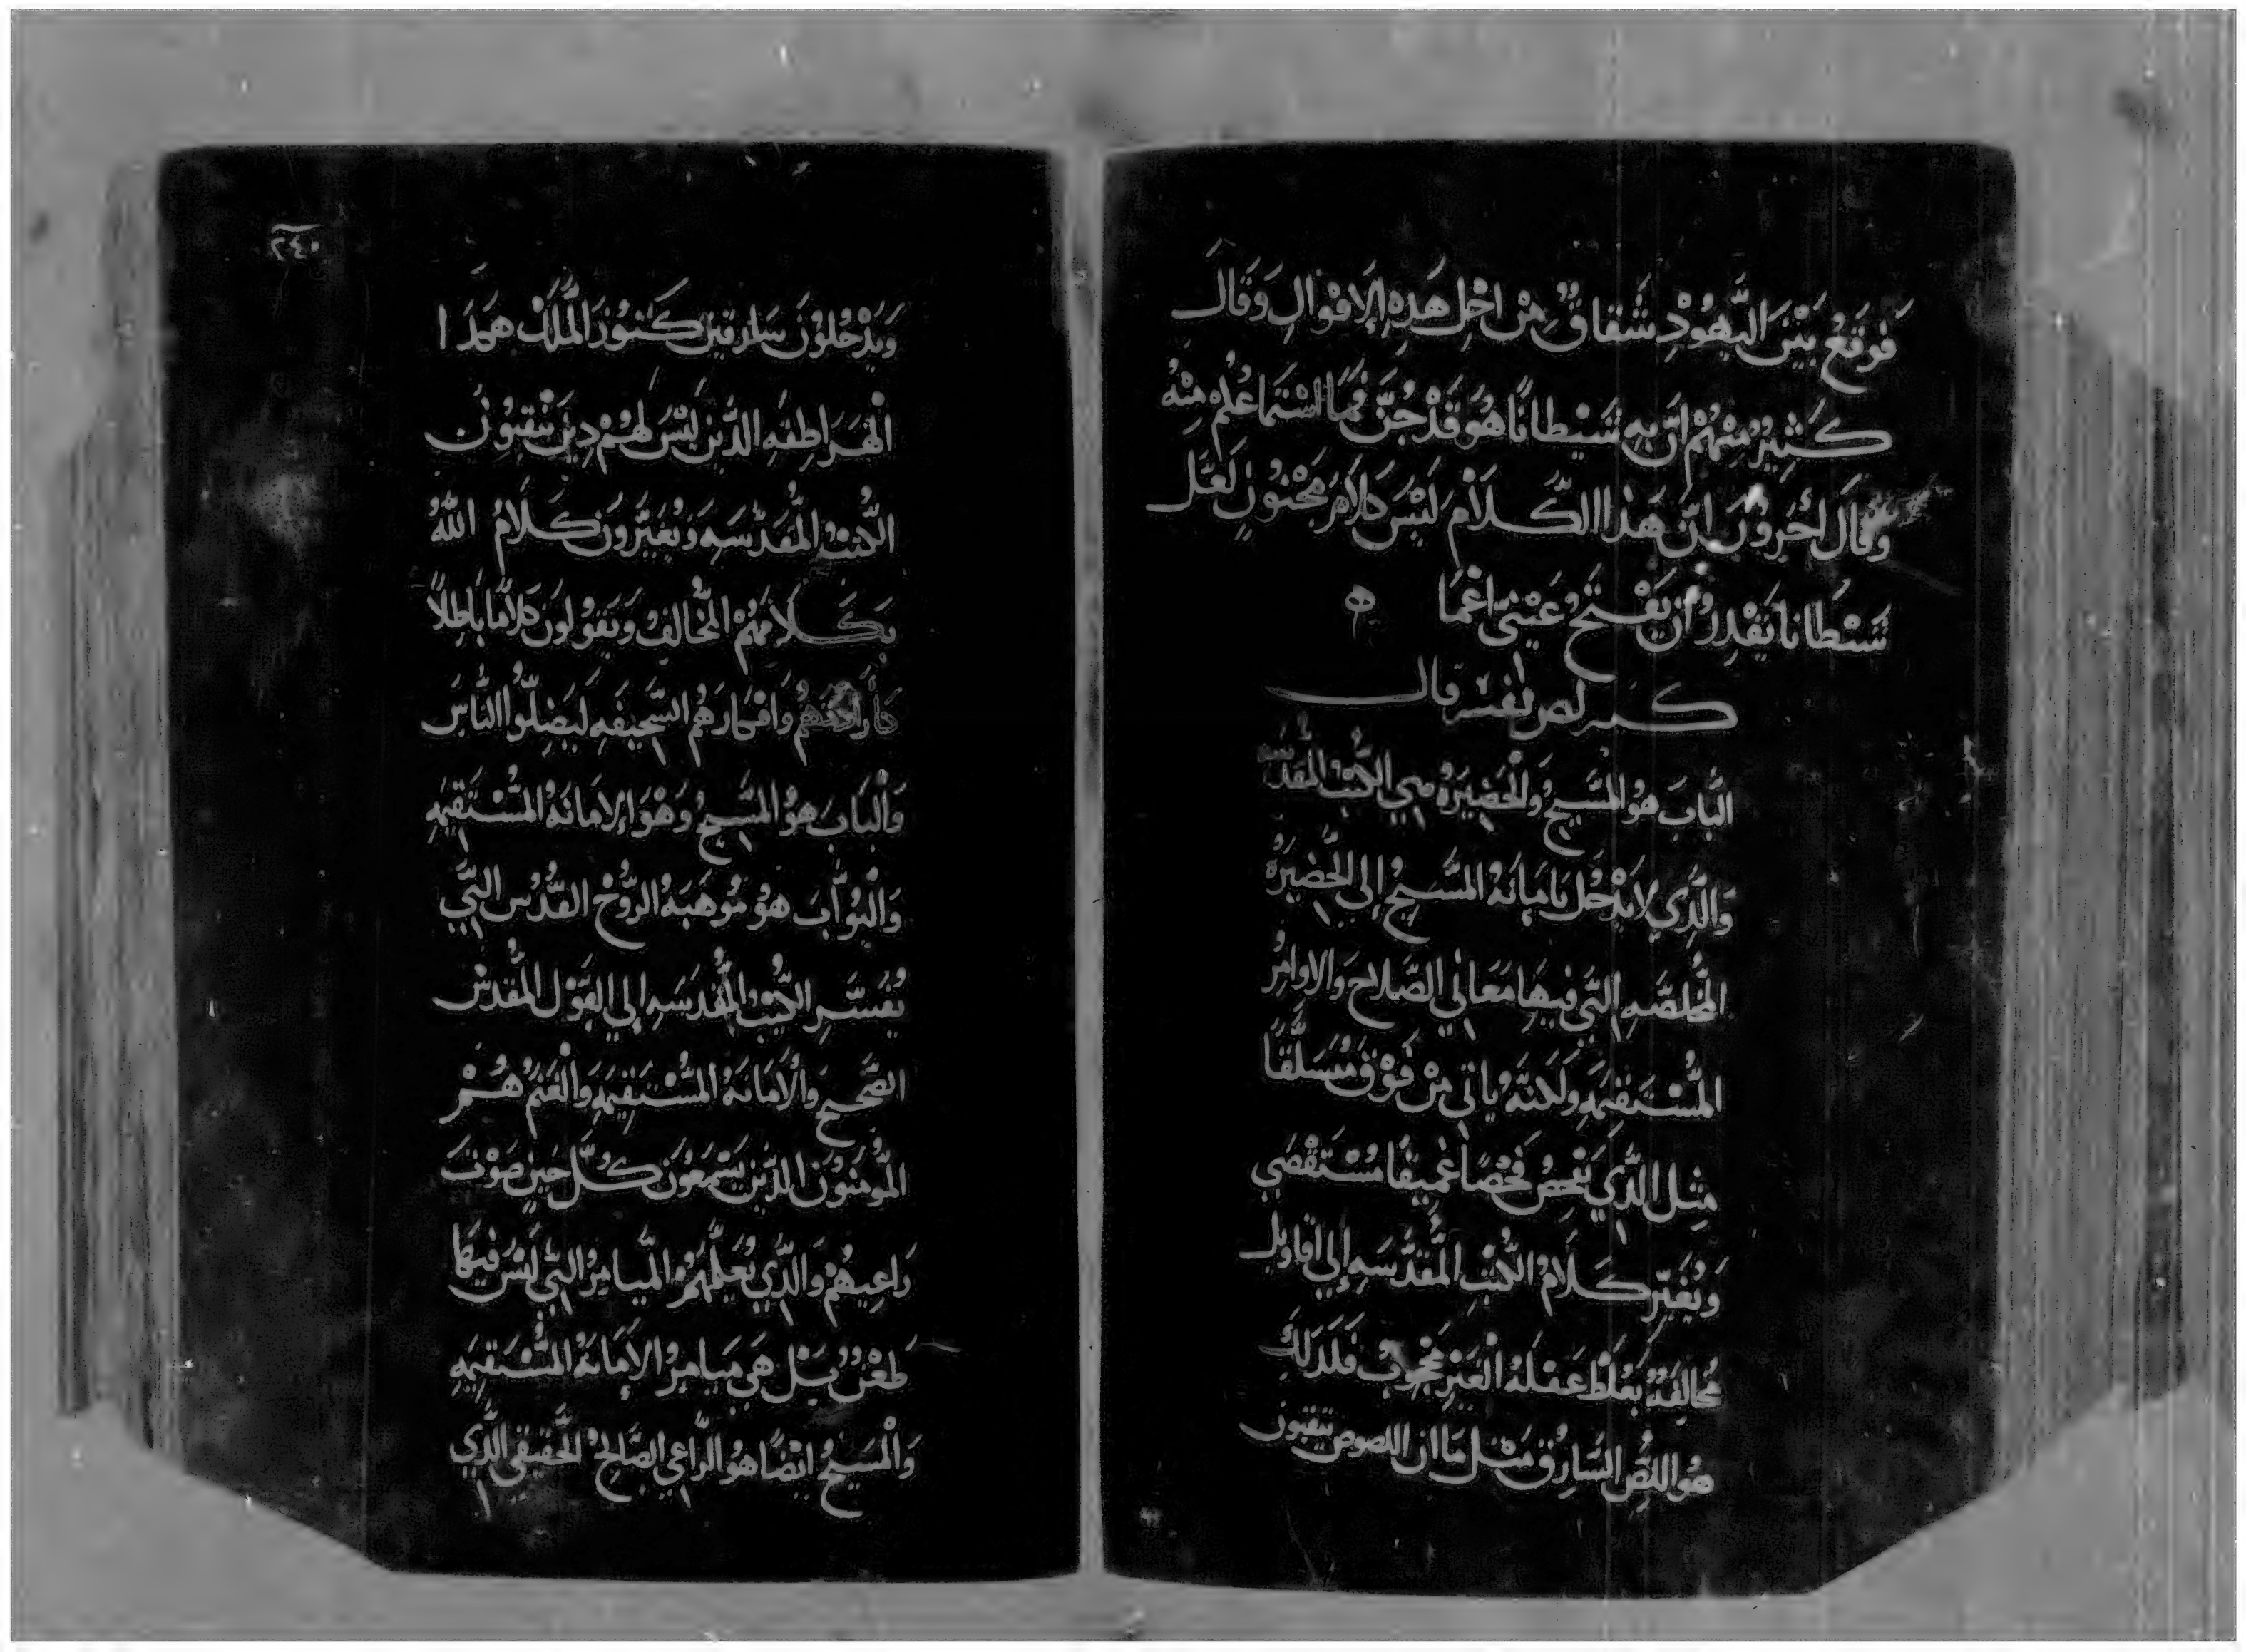 فَوقَعَ بَيْنَ اليَّهُوْدِ شَقاقٌ مِنْ اجْلِ هَذِهِ الاقوْالِ وَقَالَ
كَثِيْرٌ مِنْهُمْ انَّ بِهِ شَيْطانًا هُوَ قَدْ جُنَّ فمَا اسْتمَاعُكُمْ مِنْهُ
وَقَالَ اخَروُنَ انَّ هَذا الكَلاَمْ لَيْسَ كَلامَ مَجْنوُنٍ لَعَل
شَيْطانًا يَقْدِرُ انْ يَفْتَحُ عَيْنيّ اعْمَا
كيرلص تفسير قال
البَّابَ هوُ المسَّيحُ وَالحَضِيرَهُ هي الكُتب المقَدسَه
وَالذِّي لا يَدْخُل بامَانَهُ المسَّيحُ إلى الحَّضِيرَهُ
المُخلصَّهِ التِّي فيهَا مَعَاني الصَّلاحَ وَالاوامِرُ
المُسْتَقيمَهِ ولَكنهُ ياتي مِنْ فَوْقَ مُتسَلّقًا
مِثِل الذِّي يَفْحصُ فَحْصًا عَميقًا مُسْتَقْصَي
وَيُغَيّر كَلامُ الكُتب المقَدّسَهِ إلى اقاويل
مُخالِفَهٌ بغلَظْ عَقلهُ الغَيْر فَلَذلِكَ
هوُ اللصُّ السَّارقْ مَثْل مَا ان اللصوص ينقبون
٢٤٠
وَيَدْخُلوُنَ سَارقينَ كَنوُزَ المَلكْ هَكَذَا
الهَرَاطِقهِ الذِّينَ لَيْسَ لهُمْ دِينَ يَنْقبوُنَ
الكُتب المقَدّسَهِ وَيُغَيّرونَ كَلامُ اللَّهُ
بكَلامَهُمْ المُخَالفِ وَيَقوْلونَ كَلامًا بَاطِلاً
وَافْكارَهُم السَّخيفَهِ ليَضِلّوُا النَّاسَ
وَالْبَابَ هوُ المسَّيحُ وَهْوَ الامَانَهُ المسْتَقِيمَهِ
وَالْبَوّابَ هوُ مُوهَبَهُ الروُّحْ القُدُس التِّي
يُفسّرِ الكُتب المُقدسَهِ إلي القوْل المُقدسْ
الصَّحيحِ وَالامَانَهُ المُسْتَقِيمَهِ وَالْغَنمُ هُمْ
المُومنوُنَ الذِّينَ يَسْمَعوُنَ كُلّ حَينٍ صَوْتَ
رَاعِيهُمْ وَالذِّي يُعَلّمهُمُ المَّيامرُ التِّي لَيْسَ فيهَا
طَعْنٌ بَلْ هَي مَيامِرُ الامَانَهُ المُسْتقيَمهِ
وَالْمسَيحُ ايْضًا هوُ الرَّاعي الصَّالحُ الحَّقيقي الذِّي